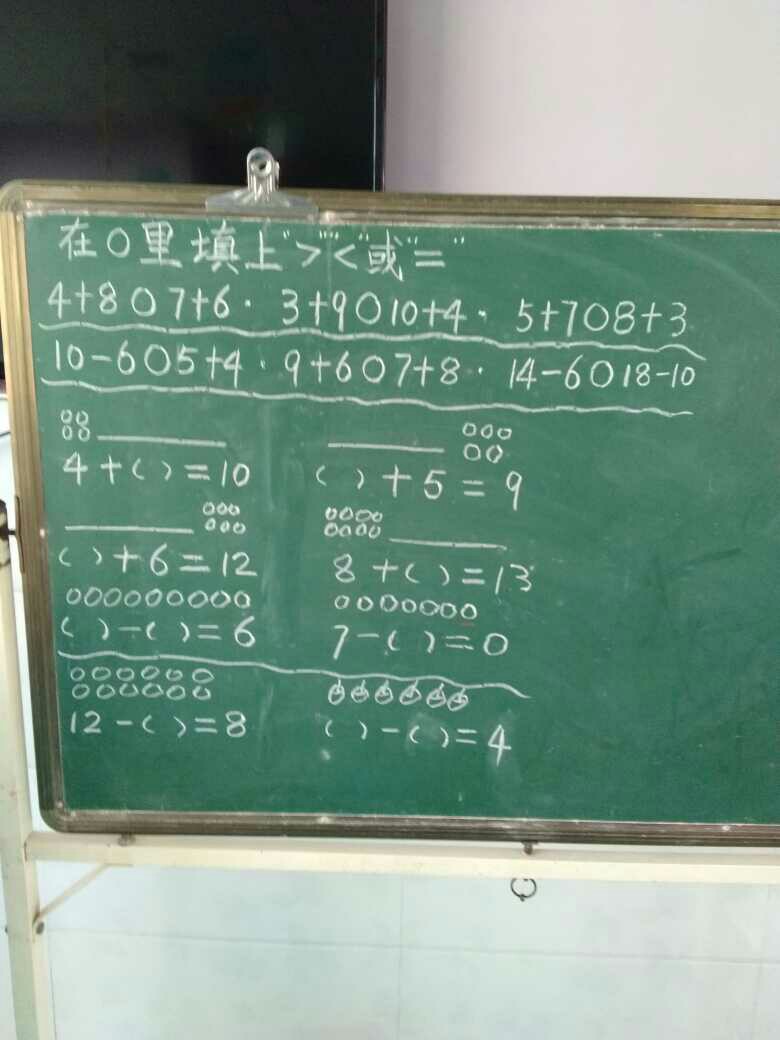 在○里填上">""<"或"="
4+8○7+6· 3+9○10+4· 5+7○8+3
10-6○5+4· 9+6○7+8· 14-6○18-10
4+( )=10 ( )+5=9
( )+6=12 8+( )=13
( )-( )=6 7-( )=0
12-( )=8 ( )-( )=4